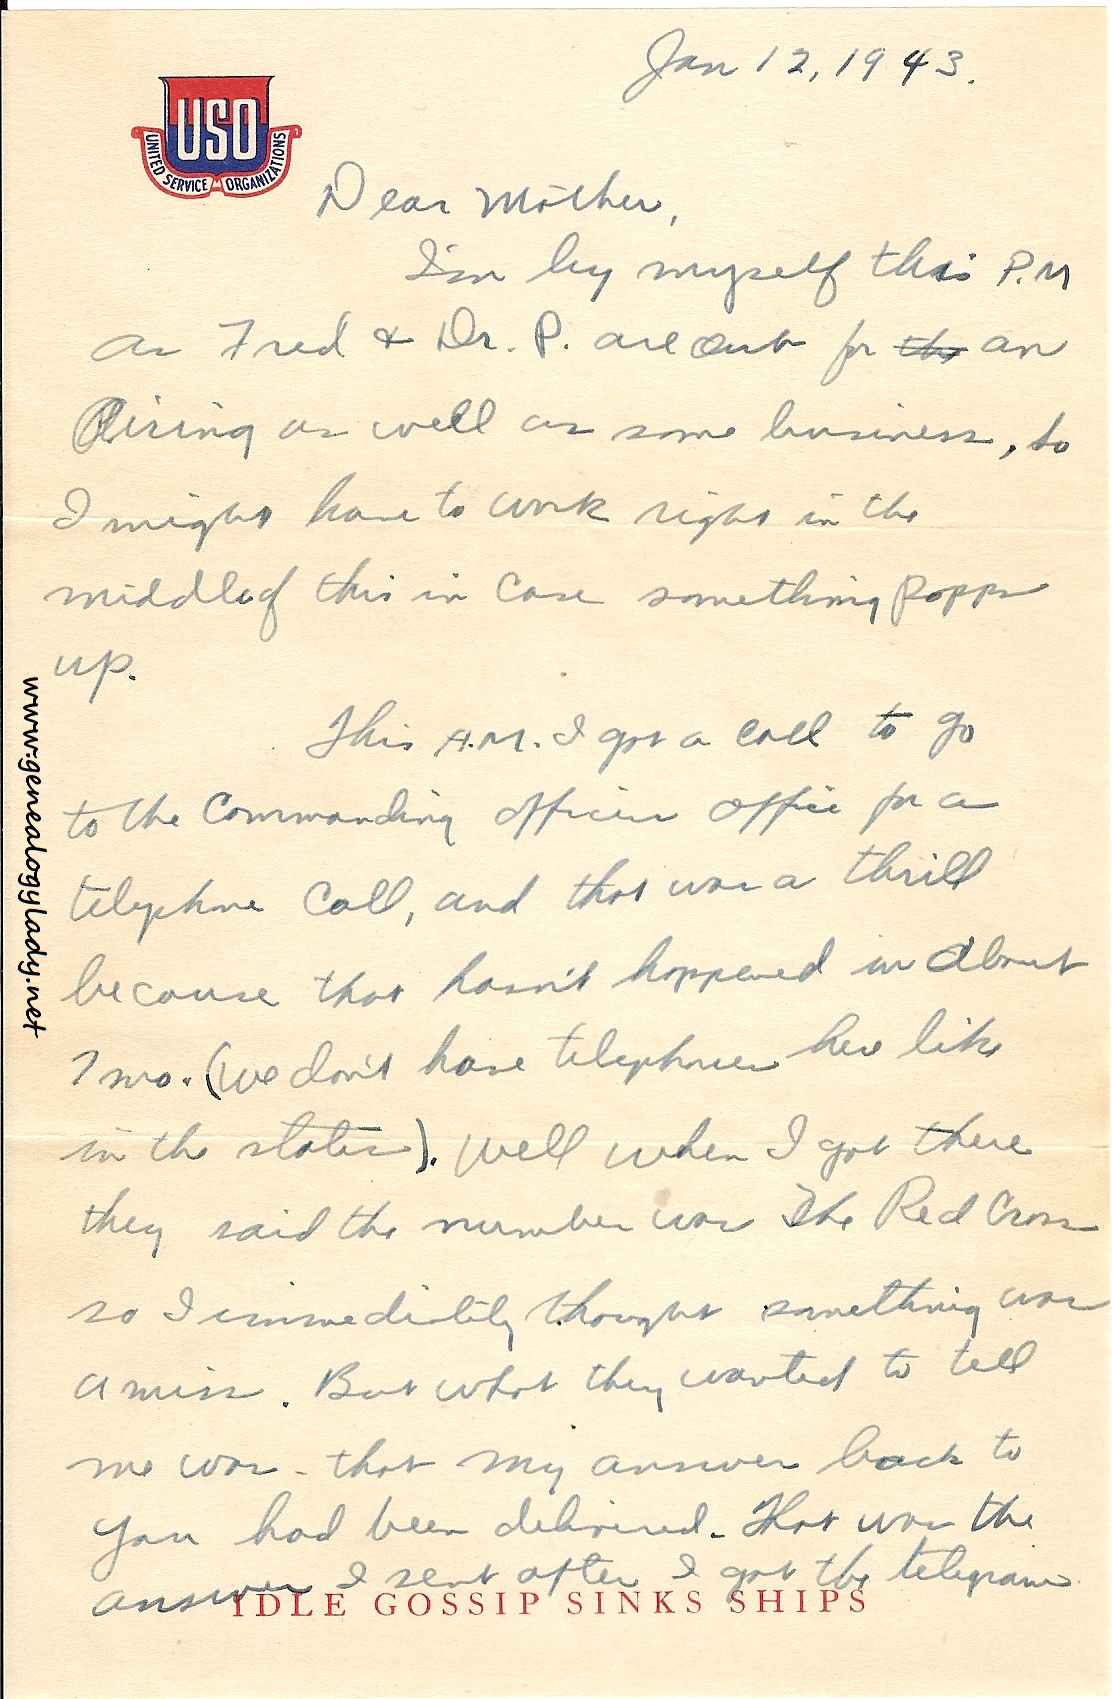 Jan 12, 1943.
USO
UNITED SERVICE ORGANIZATIONS
Dear Mother,
I'm by myself this P.M
as Fred & Dr. P. are out for the an
airing as well as some business, so
I might have to work right in the
middle of this in case something popps
up.
This A.M. I got a call to go
to the Commanding officers office for a
telephone call, and that was a thrill
because that hasn't happened in about
7 mo. (we don't have telephones here like
in the states). Well when I got there
they said the number was The Red Cross
so I immediatily thought something was
amiss. But what they wanted to tell
me was - that my answer back to
you had been delivered. That was the
answer I sent after I got the telegram
IDLE GOSSIP SINKS SHIPS
www.genealogylady.net